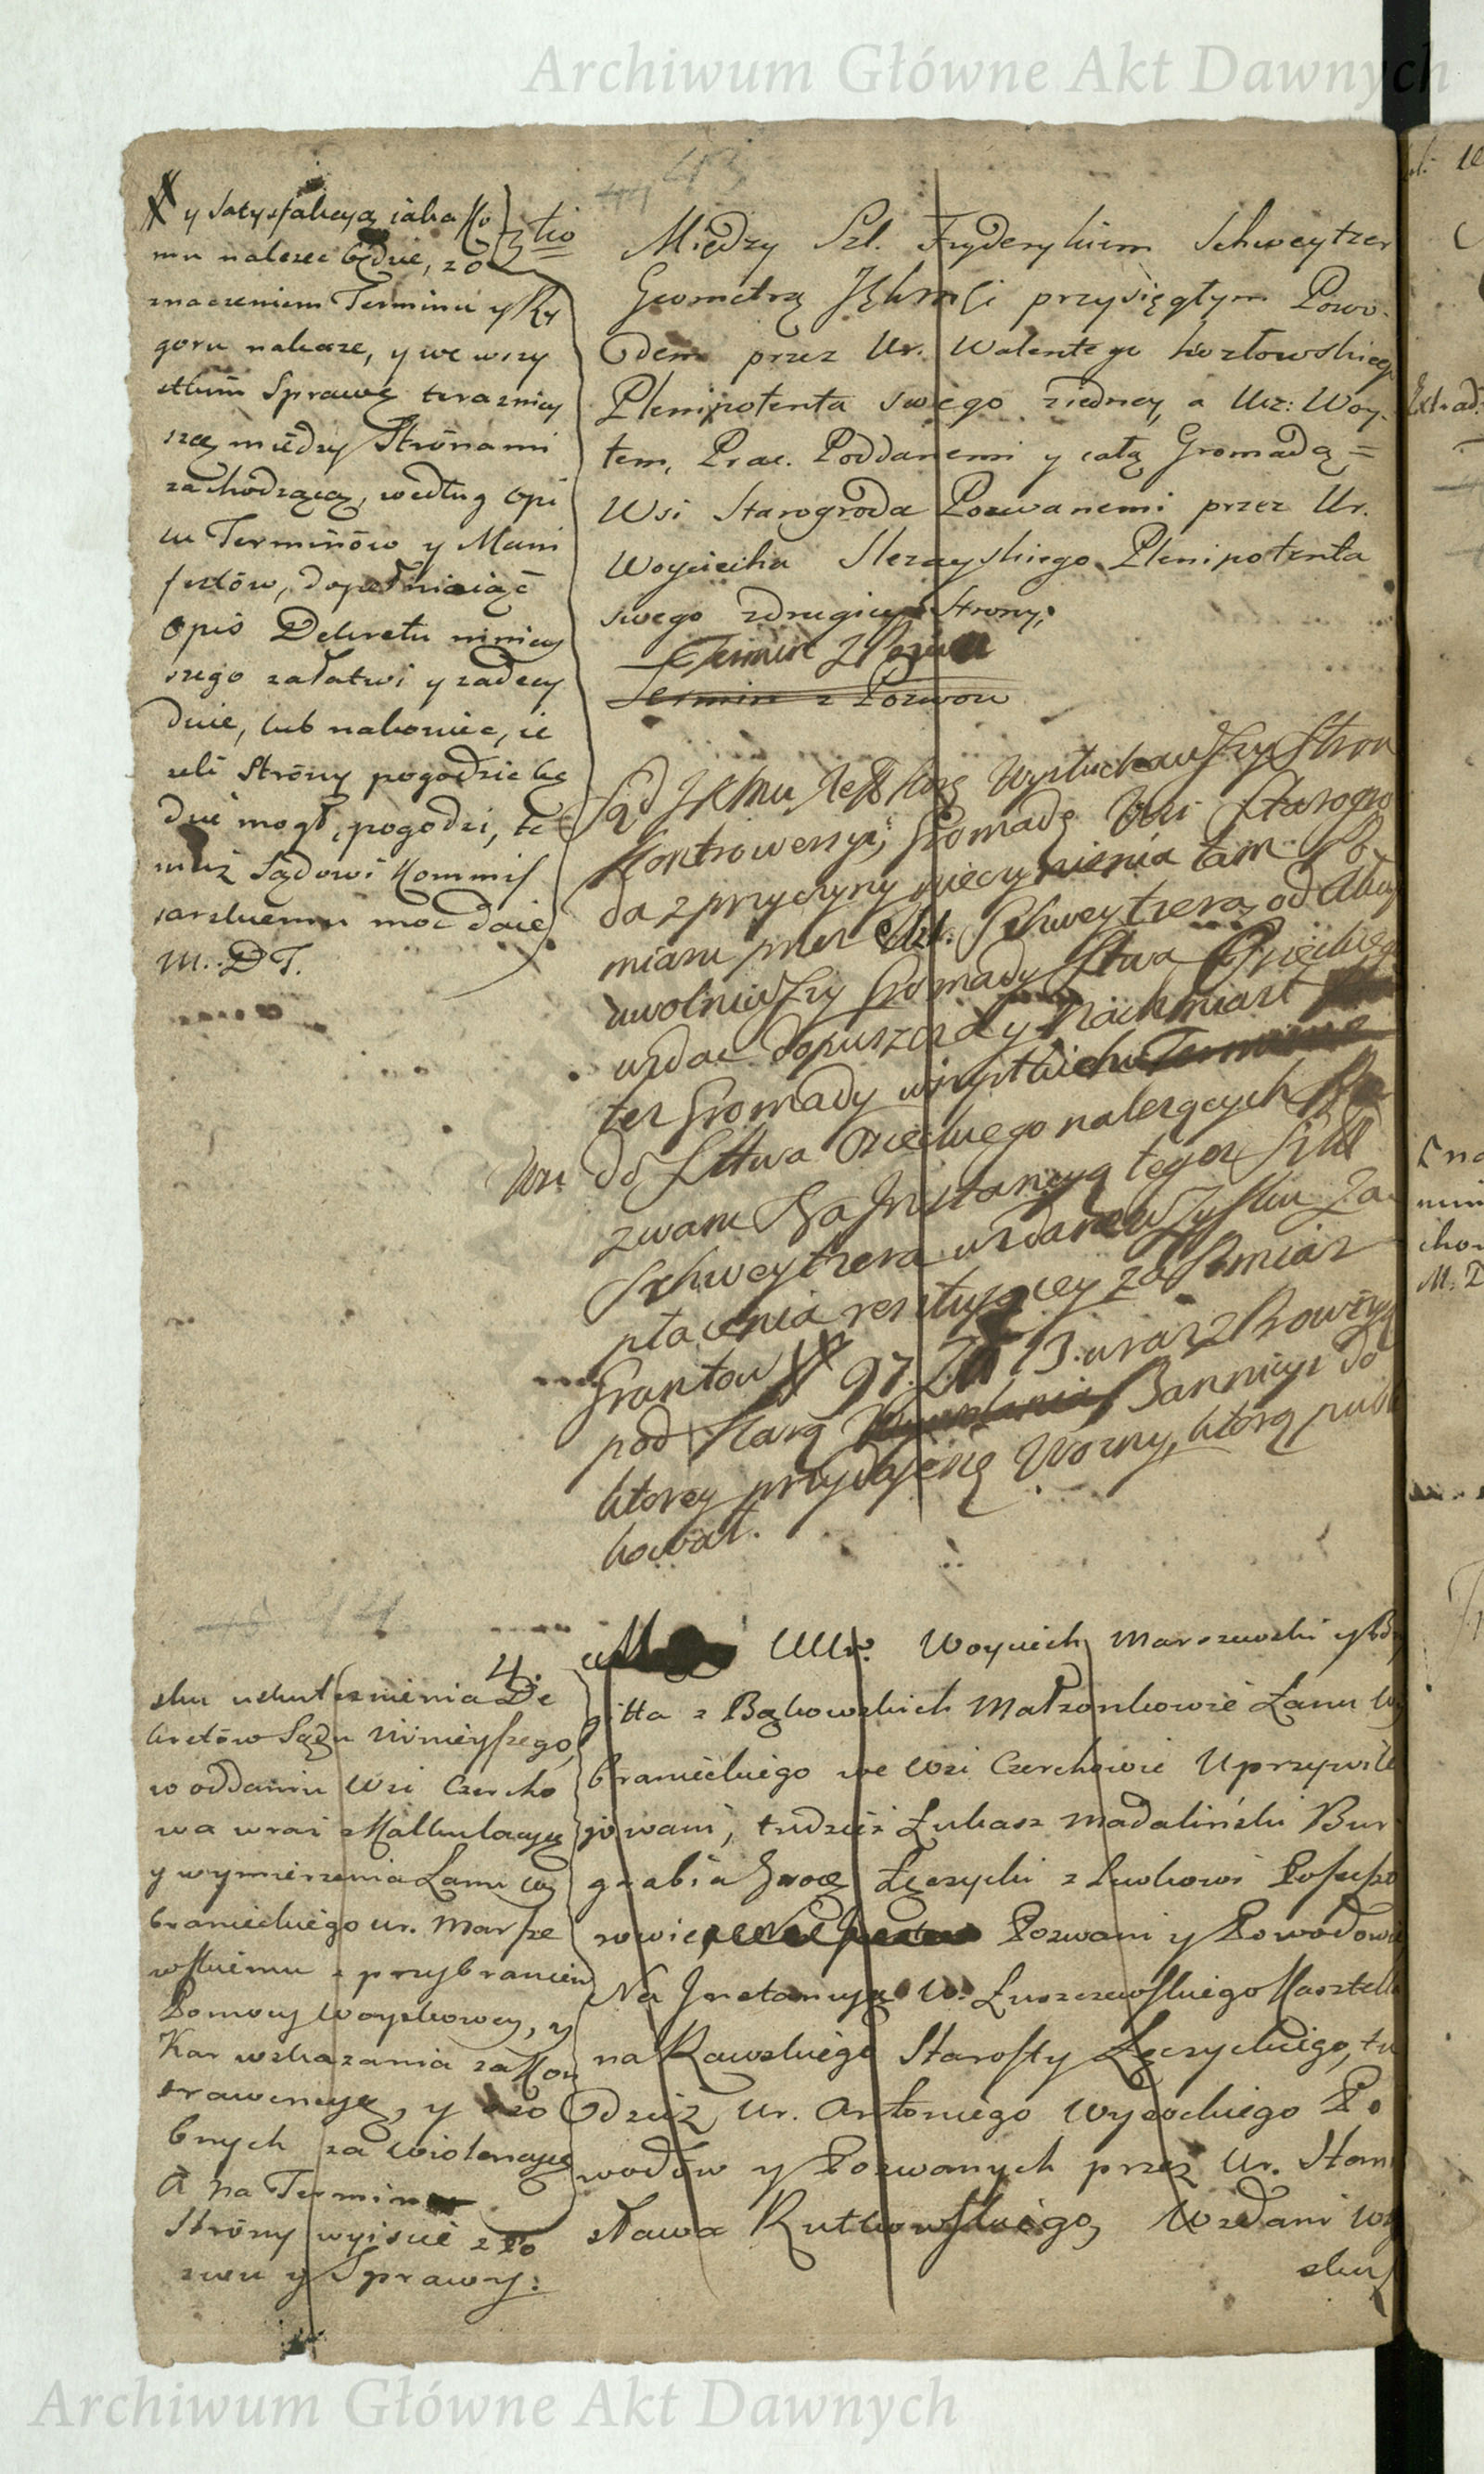 Archiwum Główne Akt Dawnych
43
X y Satysfakcyą iaka Ko
mu należeć będzie, z o
znaczeniem Terminu y Ry
goru nakaże, y we wszy
stkim Sprawę terazniey
szą między Stronami
zachodzącą, według opi
su Terminów y Mani
festów, dopełniaiąc
opis Dekretu niniey
szego załatwi y zadecy
duie, lub nakoniec, ie
zeli Strony pogodzić bę
dzie mogł, pogodzi, te
muż Sądowi Kommis
sarskiemu moc daie
M. DT.
3tio
Między Szl. Fryderykiem Schweytzer
Geometrą JKMci przysięgłym Powo-
dem przez Ur. Walentego Kozłowskiego
Plenipotenta swego z iedney, a Ucz: Woy-
tem, Prac. Poddanemi y całą Gromadą =
Wsi Starogroda Pozwanemi przez Ur.
Woyciecha Plenipotenta
swego z drugiey Strony;
Termin z Pozwu
Termin z Pozwu
Sąd JKMci Wysłuchawszy Stron
Kontrowersyi, Gromadę Wsi Starogro
da z przyczyny nieczynienia tam Po-
miaru przez Szl. Schweytzera, od Akcyi
uwolniwszy Gromady
wzdać dopuszcza y Natychmiast
też Gromady wszystkich
Wsi do Sttwa należących
zwane Na Instancyą tegoż Szl
Schweytzera wzdane w zysku Za-
płacenia resztuiącey za Pomiar
Grontow 97. Zł 13. wraz z Prowizyą
pod Karą Bannicyi do
ktorey przydaje się Wozny, ktorą publi
kował.
44
4.
UUr. Woyciech Marszewski y Bry
gitta z Bąkowskich Małżonkowie Łanu Wy
branieckiego we Wsi Czerchowie Uprzywile
jowani, tudzież Łukasz Madaliński Bur
grabia Grodz Łęczycki z Lwhowi Possesso
rowie, Pozwani y Powodowie
Na Instancyą W. Łuszczewskiego Kasztella
na Rawskiego Starosty Łęczyckiego, tu
dzież Ur. Antoniego Wysockiego Po
wodów y Pozwanych przez Ur. Stani
sława Rutkowskiego, Wzdani W zy
sku
sku uskutecznienia De
kretów Sądu Ninieyszego,
w oddaniu Wsi Czercho
wa wraz z Kalkulacyą
y wymierzenia Łanu Wy
branieckiego Ur. Marsze
wskiemu z przybraniem
Pomocy Woyskowey, y
Kar wskazania za Kon
trawencyą, y oso
bnych za Wiolencyą
A na Termin
Strony wyiście z Po
zwu y Sprawy.
Archiwum Główne Akt Dawnych